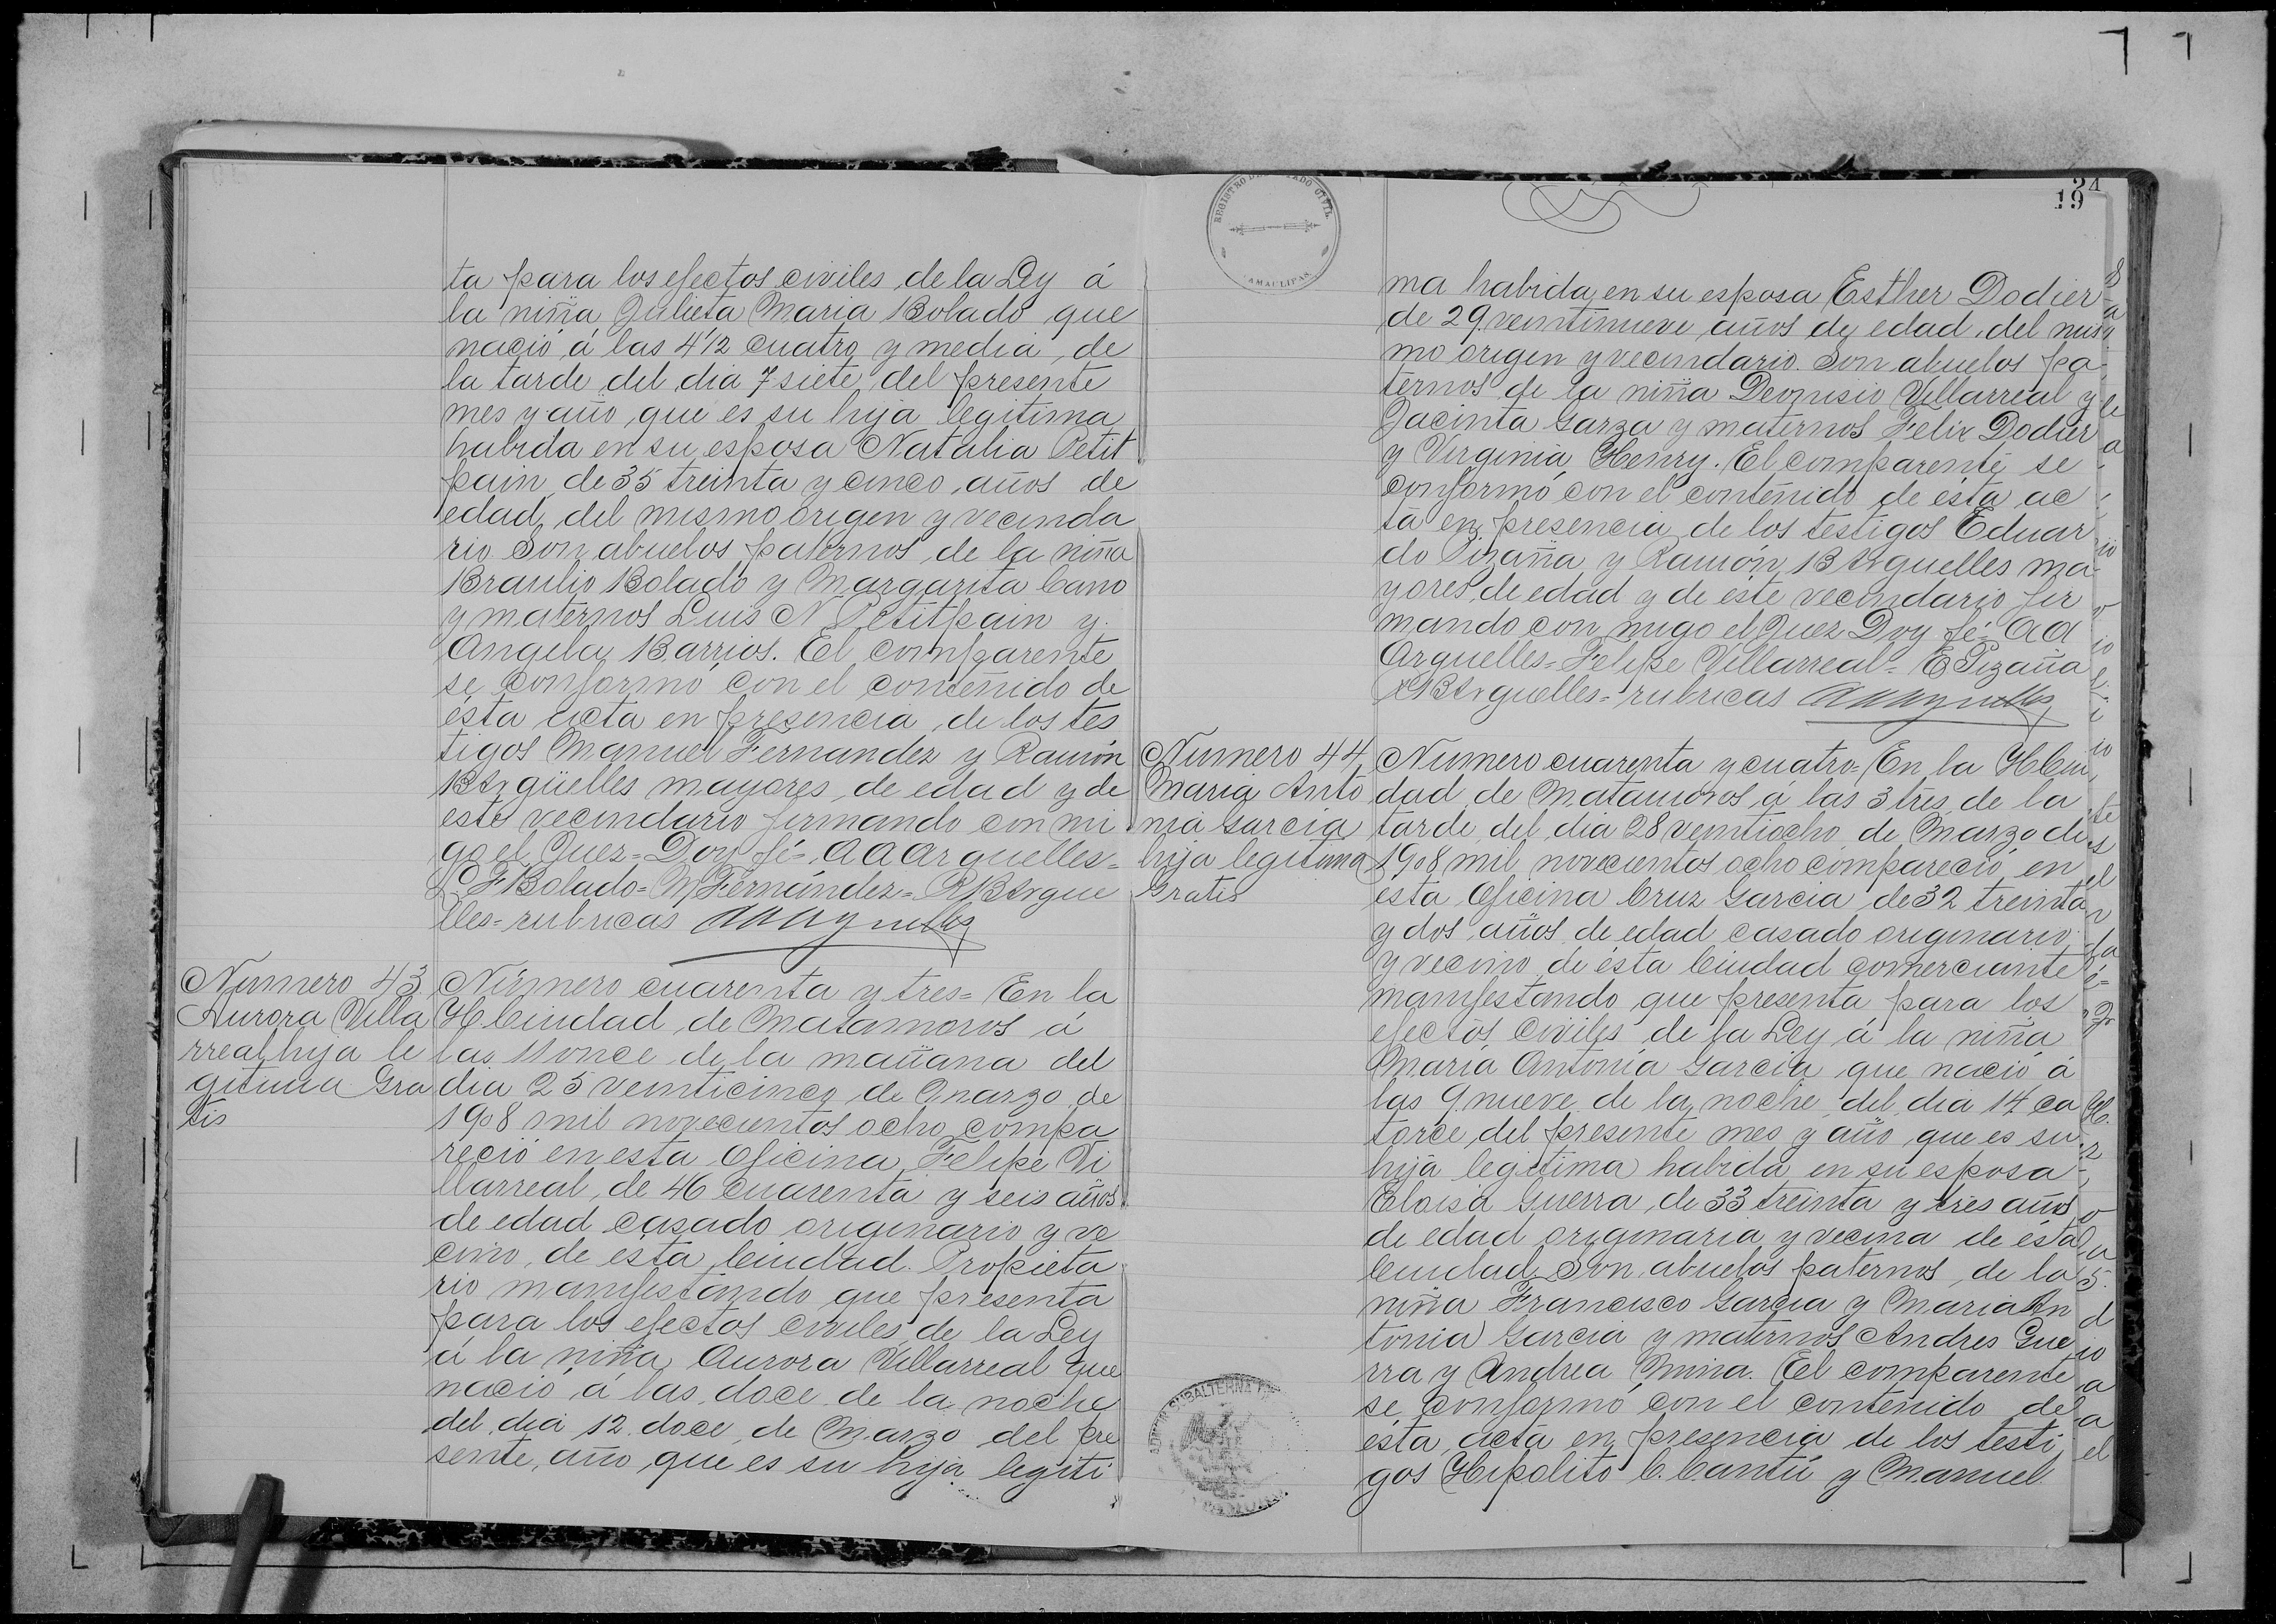 ta para los efectos civiles de la Ley á
la niña Julieta Maria Bolado que
nació á las 4 1/2 cuatro y media de
la tarde del dia 7 siete del presente
mes y año, que es su hija legitima
habida en su esposa Natalia Petit
pain de 35 treinta y cinco años de
edad, del mismo origen y vecinda
rio. Son abuelos paternos de la niña
Braulio Bolado y Margarita Cano
y maternos Luis N Petitpain y
Angela Barrios. El comparente
se conformó con el contenido de
ésta acta en presencia de los tes
tigos Manuel Fernandez y Ramón
B Argüelles mayores de edad y de
este vecindario firmando con mi
go el Juez = Doy fé = A A Arguelles =
L F Bolado = M Fernández = R B Argue
lles = rubricas
Número 43
Aurora Villa
rreal hija le
gitima Gra
tis
Número cuarenta y tres = En la
H Ciudad de Matamoros á
las 11 once de la mañana del
dia 25 veinticinco de Marzo de
1908 mil novecientos ocho compa
reció en esta Oficina, Felipe Vi
llarreal, de 46 cuarenta y seis años
de edad casado originario y ve
cino, de ésta Ciudad. Propieta
rio manifestando que presenta
para los efectos civiles de la Ley
á la niña Aurora Villarreal que
nació á las doce de la noche
del dia 12 doce de Marzo del pre
sente, año que es su hija legiti
REGISTRO DEL ESTADO CIVIL
TAMAULIPAS
24
19
ma habida en su esposa Esther Dodier
de 29 veintinueve años de edad, del mis
mo origen y vecindario. Son abuelos pa
ternos de la niña Dionisio Villarreal y
Jacinta Garza y maternos Felix Dodier
y Virginia Henry. El comparente se
conformó con el contenido de ésta ac
ta en presencia de los testigos Eduar
do Pizaña y Ramón B Arguelles ma
yores de edad y de éste vecindario fir
mando con migo el Juez Doy fé = A A
Arguelles = Felipe Villarreal = E Pizaña
R B Arguelles = rubricas
Número 44
Maria Anto
nia Garcia
hija legitima
Gratis
Número cuarenta y cuatro = En la H Ciu
dad de Matamoros á las 3 tres de la
tarde del dia 28 veintiocho de Marzo de
1908 mil novecientos ocho compareció en
esta Oficina Cruz Garcia de 32 treinta
y dos años de edad casado originario
y vecino de ésta Ciudad comerciante
manifestando que presenta para los
efectos civiles de la Ley á la niña
Maria Antonia Garcia que nació á
las 9 nueve de la noche del dia 14 ca
torce del presente mes y año que es su
hija legitima habida en su esposa
Eloisa Guerra, de 33 treinta y tres años
de edad originaria y vecina de ésta
Ciudad Son abuelos paternos de la
niña Francisco Garcia y Maria An
tonia Garcia y maternos Andres Gue
rra y Andrea Mina. El comparente
se conformó con el contenido de
ésta acta en presencia de los testi
gos Hipolito C. Cantú y Manuel
SUBALTERNA